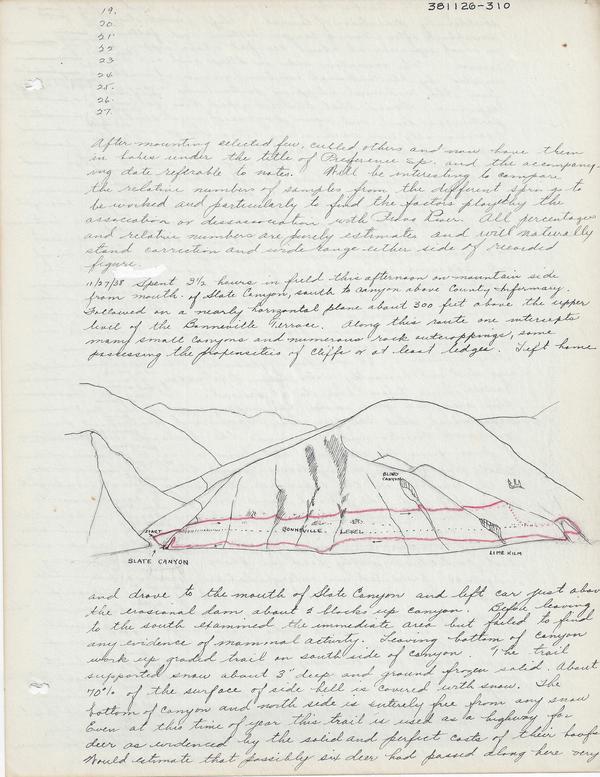 381126-310
19.
20.
21.
22
23
24
25.
26.
27.
After mounting selected few, culled others and now have them
in boxes under the title of Preference Sp. and the accompany-
ing date referable to notes. Will be interesting to compare
the relative numbers of samples from the different sprin gs to
be worked and particularly to find the factors played by the
association or dessasociation with Provo River. All percentages
and relative numbers are purely estimates and will naturally
stand correction and wide range either side of recorded
figure.
11/27/38 Spent 3½ hours in field this afternoon on mountain side
from mouth of Slate Canyon, south to canyon above County Infirmary.
Followed on a nearly horizontal plane about 300 feet above the upper
level of the Bonneville Terrace. Along this route one intercepts
many small canyons and numerous rock outcroppings, some
possessing the propensities of cliffs or at least ledges. Left home
BLIND
CANYON
START
BONNEVILLE LEVEL
SLATE CANYON
LIME KILM
and drove to the mouth of Slate Canyon and left car just above
the erosional dam, about 2 blocks up canyon. Before leaving
to the south examined the immediate area but failed to find
any evidence of mammal activity. Leaving bottom of canyon
work up graded trail on south side of canyon. The trail
supported snow about 3" deep and ground frozen solid. About
70% of the surface of side hill is covered with snow. The
bottom of canyon and north side is entirely free from any snow
Even at this time of year this trail is used as a highway for
deer as evidenced by the solid and perfect casts of their hoofs
Would estimate that possibly six deer had passed along here very